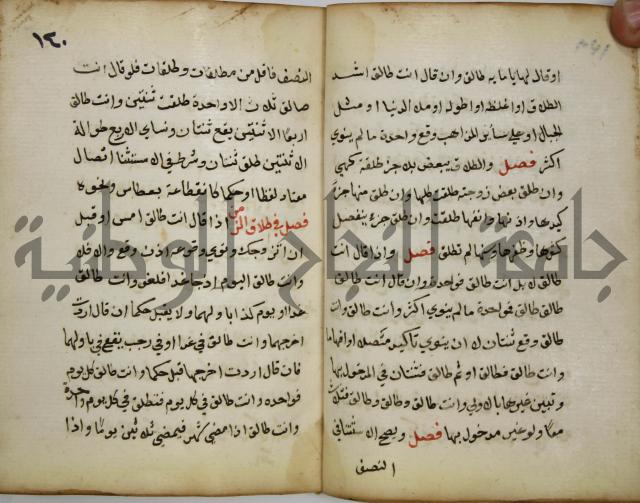 او قال لها يا مايه طالق وان قال انت طالق اشد
الطلاق او اغلظه او اطوله او ملء الدنيا او مثل
الجبال او على سائر المذاهب وقع واحدة ما لم ينوي
اكثر فصل والطلاق يتبعض بل جزء طلقة كهي
وان طلق بعض زوجته طلقت كلها وان طلق منها جزء
كيدها واذنها وانفها طلقت وان طلق جزء ينفصل
كشعرها وظفرها وسنها لم تطلق فصل واذا قال انت
طالق لا بل انت طالق فواحدة وان قال انت طالق
طالق طالق فواحدة ما لم ينوي اكثر وانت طالق انت
طالق وقع ثنتان لا ان ينوي تأكيد متصلا او افهاما
وانت طالق فطالق او ثم طالق فثنتان في المدخول بها
وتبين غيرها بالاولى وانت طالق وطالق وطالق فثلاث
معا ولو غير مدخول بها فصل ويصح الاستثنا في
النصف
١٤٠
النصف فاقل من مطلقات وطلقات فلو قال انت
طالق ثلاث الا واحدة طلقت ثنتين وانت طالق
اربعا الا ثنتين يقع ثنتان ونساي الاربع طوالق
الا ثنتين طلق ثنتان وشرط في الاستثنا اتصال
معتاد لفظا او حكما كانقطاعه بعطاس ونحوه
فصل في طلاق الزمن اذا قال انت طالق امس او قبل
ان اتزوجك ونوى وقوعه اذن وقع والا فلا
وانت طالق اليوم اذا جا غد فلغو وانت طالق
غدا او يوم كذا باولهما ولا يقبل حكما ان قال اردت
اخرهما وانت طالق في غد او في رجب يقع في باولهما
فان قال اردت اخرهما قبل حكما وانت طالق كل يوم
فواحدة وانت طالق في كل يوم فتطلق في كل يوم واحدة
وانت طالق اذا مضى شهر فبمضي ثلاثين يوما واذا
جامعة النجاح الوطنية